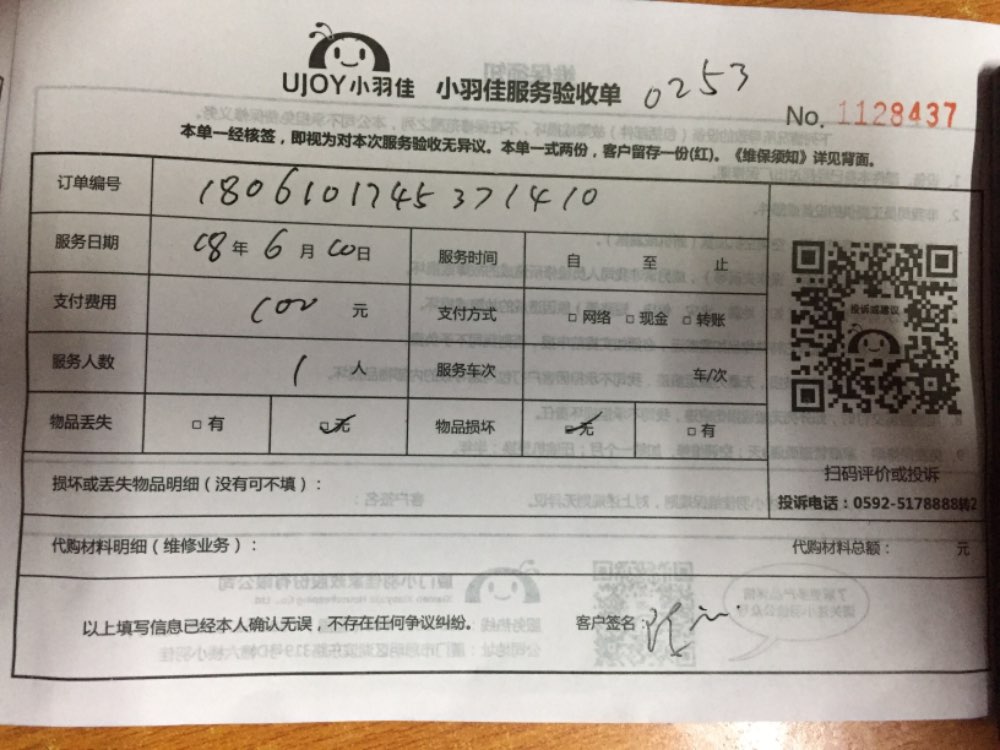 UJOY小羽佳 小羽佳服务验收单 0253
No. 1128437
本单一经核签，即视为对本次服务验收无异议。本单一式两份，客户留存一份(红)。《维保须知》详见背面。
订单编号 1806101745371410
服务日期 18年6月10日 服务时间 自 至 止
支付费用 100 元 支付方式 □网络 □现金 □转账
投诉或建议
服务人数 1 人 服务车次 车/次
物品丢失 □有 □无 物品损坏 □无 □有
扫码评价或投诉
损坏或丢失物品明细（没有可不填）：
投诉电话：0592-5178888转2
代购材料明细（维修业务）： 代购材料总额： 元
以上填写信息已经本人确认无误，不存在任何争议纠纷。 客户签名：